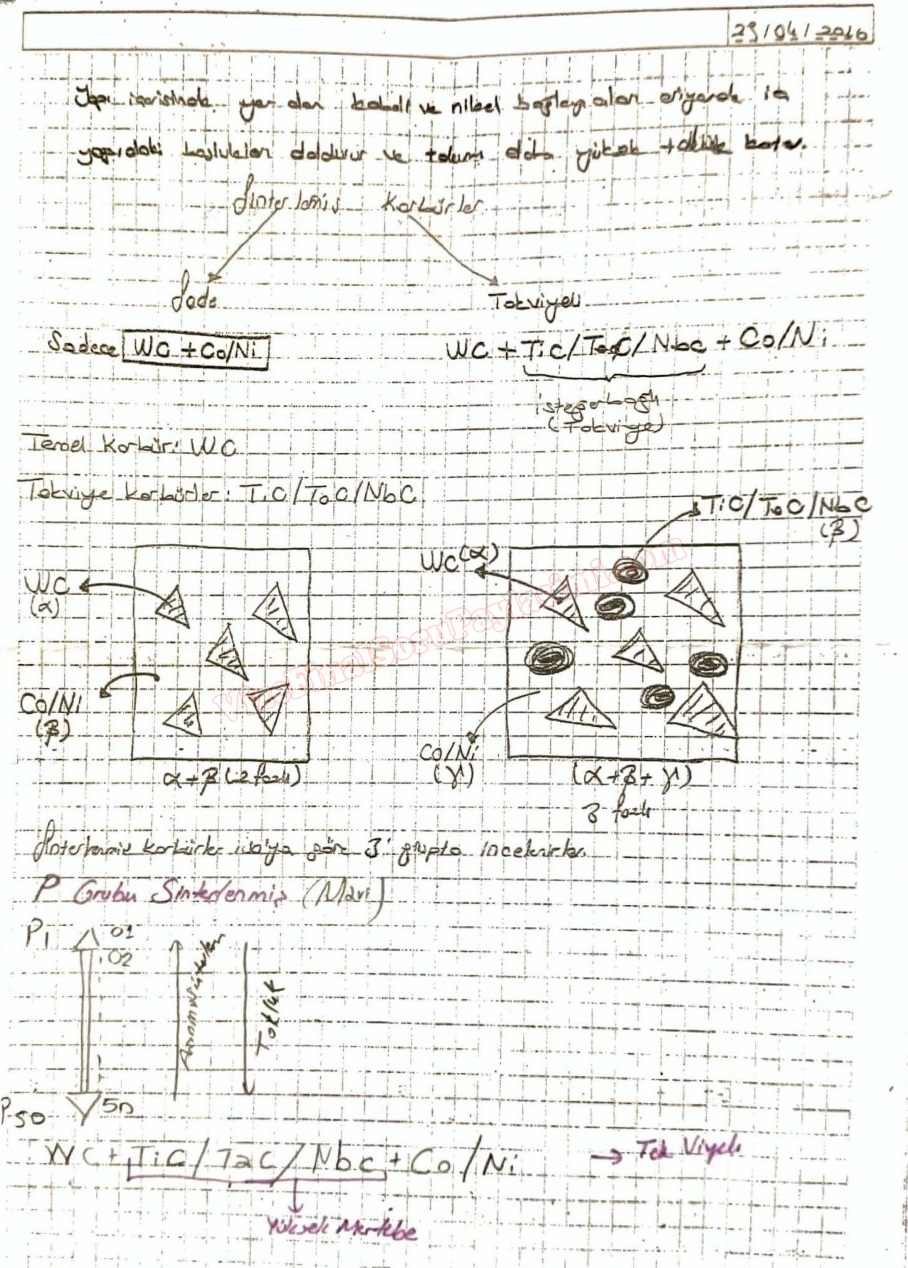 29/04/2016
Yapı içerisinde yer alan kobalt ve nikel bağlayı alan eriyerek iç
yapıdaki boşlukları doldurur ve takım daha yüksek tokluk katar.
Sinterlemiş Karbürler
Sade
Takviyeli
Sadece WC + Co/Ni
WC + TiC/TaC/Nbc + Co/Ni
isteğe bağlı
(Takviye)
Temel Karbür: WC
Takviye Karbürler: TiC/TaC/NbC
TiC/TaC/NbC
(β)
WC (α)
WC
(α)
Co/Ni
(β)
Co/Ni
(γ)
α+β (2 fazlı)
(α+β+γ)
3 fazlı
Sinterlenmiş karbürler iso'ya göre 3 grupta incelenirler.
P Grubu Sinterlenmiş (Mavi)
P1
01
02
Tokluk
P50
50
WC + TiC/TaC/Nbc + Co/Ni → Takviyeli
Yüksek Mertebe